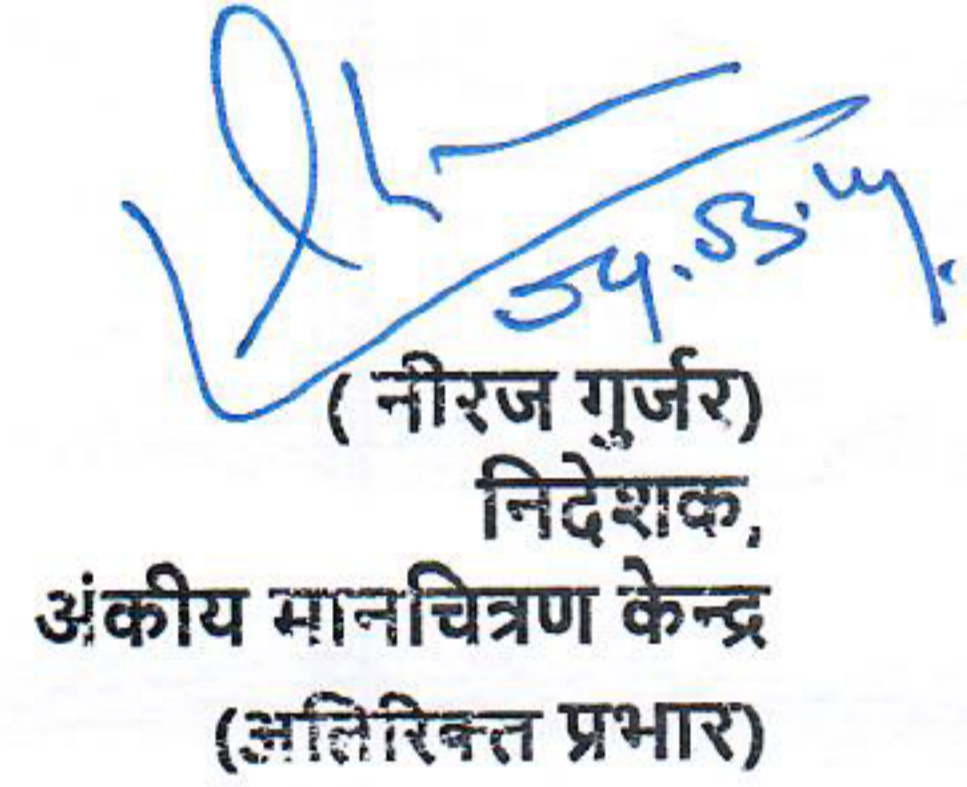 ( नीरज गुर्जर)
निदेशक,
अंकीय मानचित्रण केन्द्र
(अतिरिक्त प्रभार)